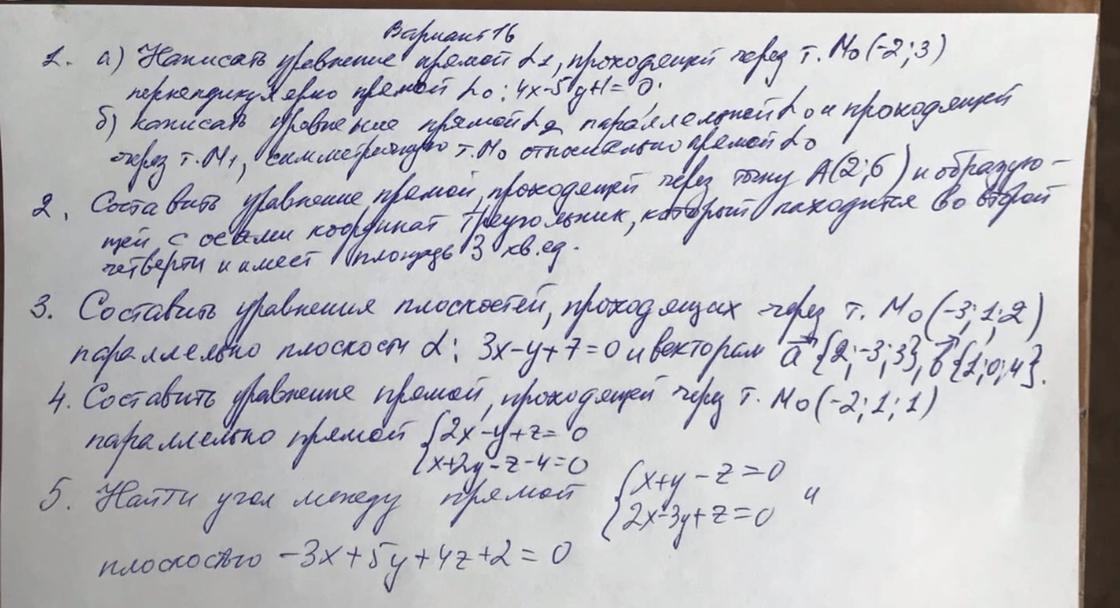 Вариант 16
1. а) Написать уравнение прямой L1, проходящей через т. M0(-2; 3)
перпендикулярно прямой L0: 4x-5y+1=0.
б) написать уравнение прямой L2 параллельной L0 и проходящей
через т. M1, симметричную т. M0 относительно прямой L0
2. Составить уравнение прямой, проходящей через точку A(2; 6) и образую-
щей с осами координат треугольник, который находится во второй
четверти и имеет площадь 3 кв.ед.
3. Составить уравнения плоскостей, проходящих через т. M0(-3; 1; 2)
параллельно плоскости α: 3x-y+7=0 и векторам a⃗{2;-3;3}, b⃗{1;0;4}.
4. Составить уравнение прямой, проходящей через т. M0(-2; 1; 1)
параллельно прямой {2x-y+z=0
{x+2y-z-4=0
5. Найти угол между прямой {x+y-z=0 и
{2x-3y+z=0
плоскостью -3x+5y+4z+2=0